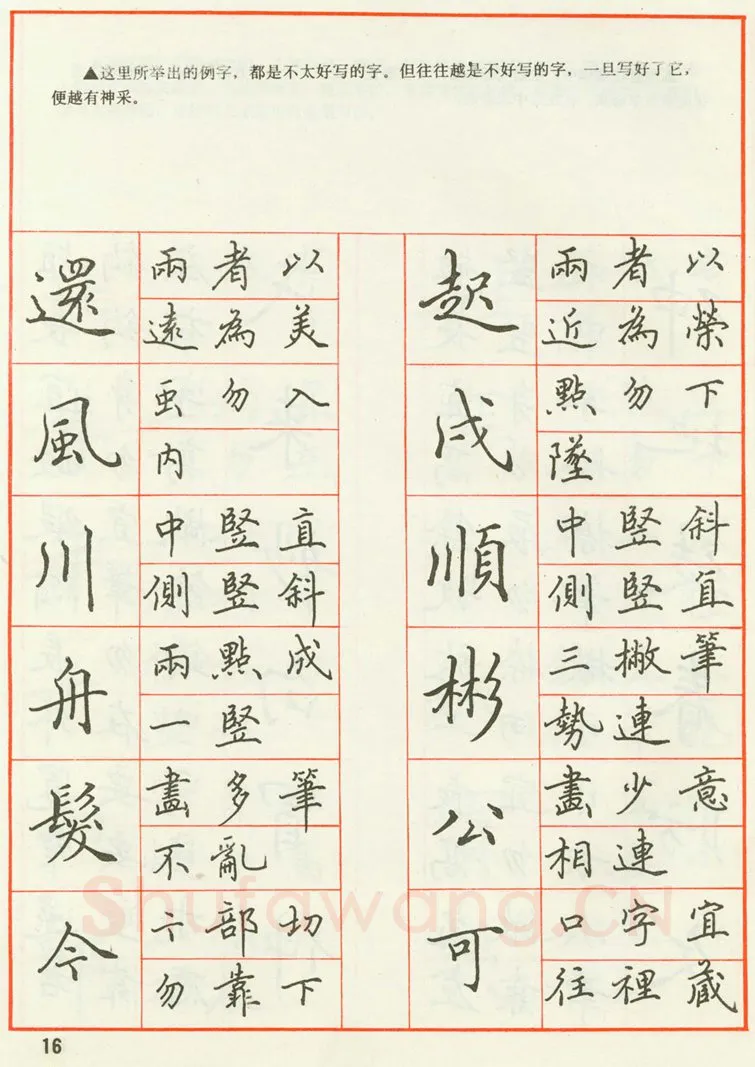 ▲这里所举出的例字，都是不太好写的字。但往往越是不好写的字，一旦写好了它，
便越有神采。
還
兩者以
遠為美
風
虫勿入
内
川
中竪直
側竪斜
舟
兩點成
一竪
髮
畫多筆
不亂
今
下部切
勿靠下
起
兩者以
近為榮
戍
點勿下
墜
順
中竪斜
側竪直
彬
三撇筆
勢連
公
畫少意
相連
可
口字宜
往裡藏
Shufawang.CN
16